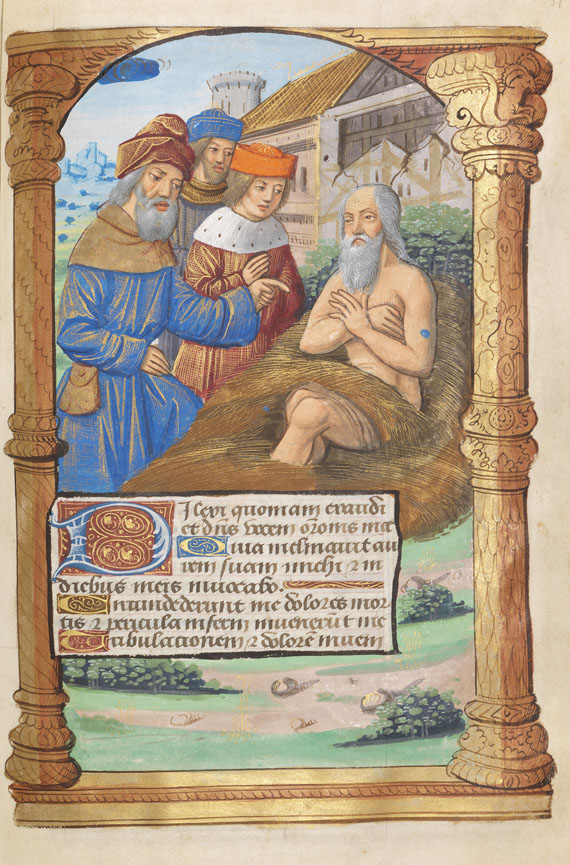 Dilexi quoniam exaudi
et dn̄s vocem orōnis mee
Quia inclinavit au
rem suam michi ⁊ in
diebus meis invocabo.
Circundederunt me dolores mor
tis ⁊ pericula inferni invenerūt me
Tribulationem ⁊ dolorē inveni